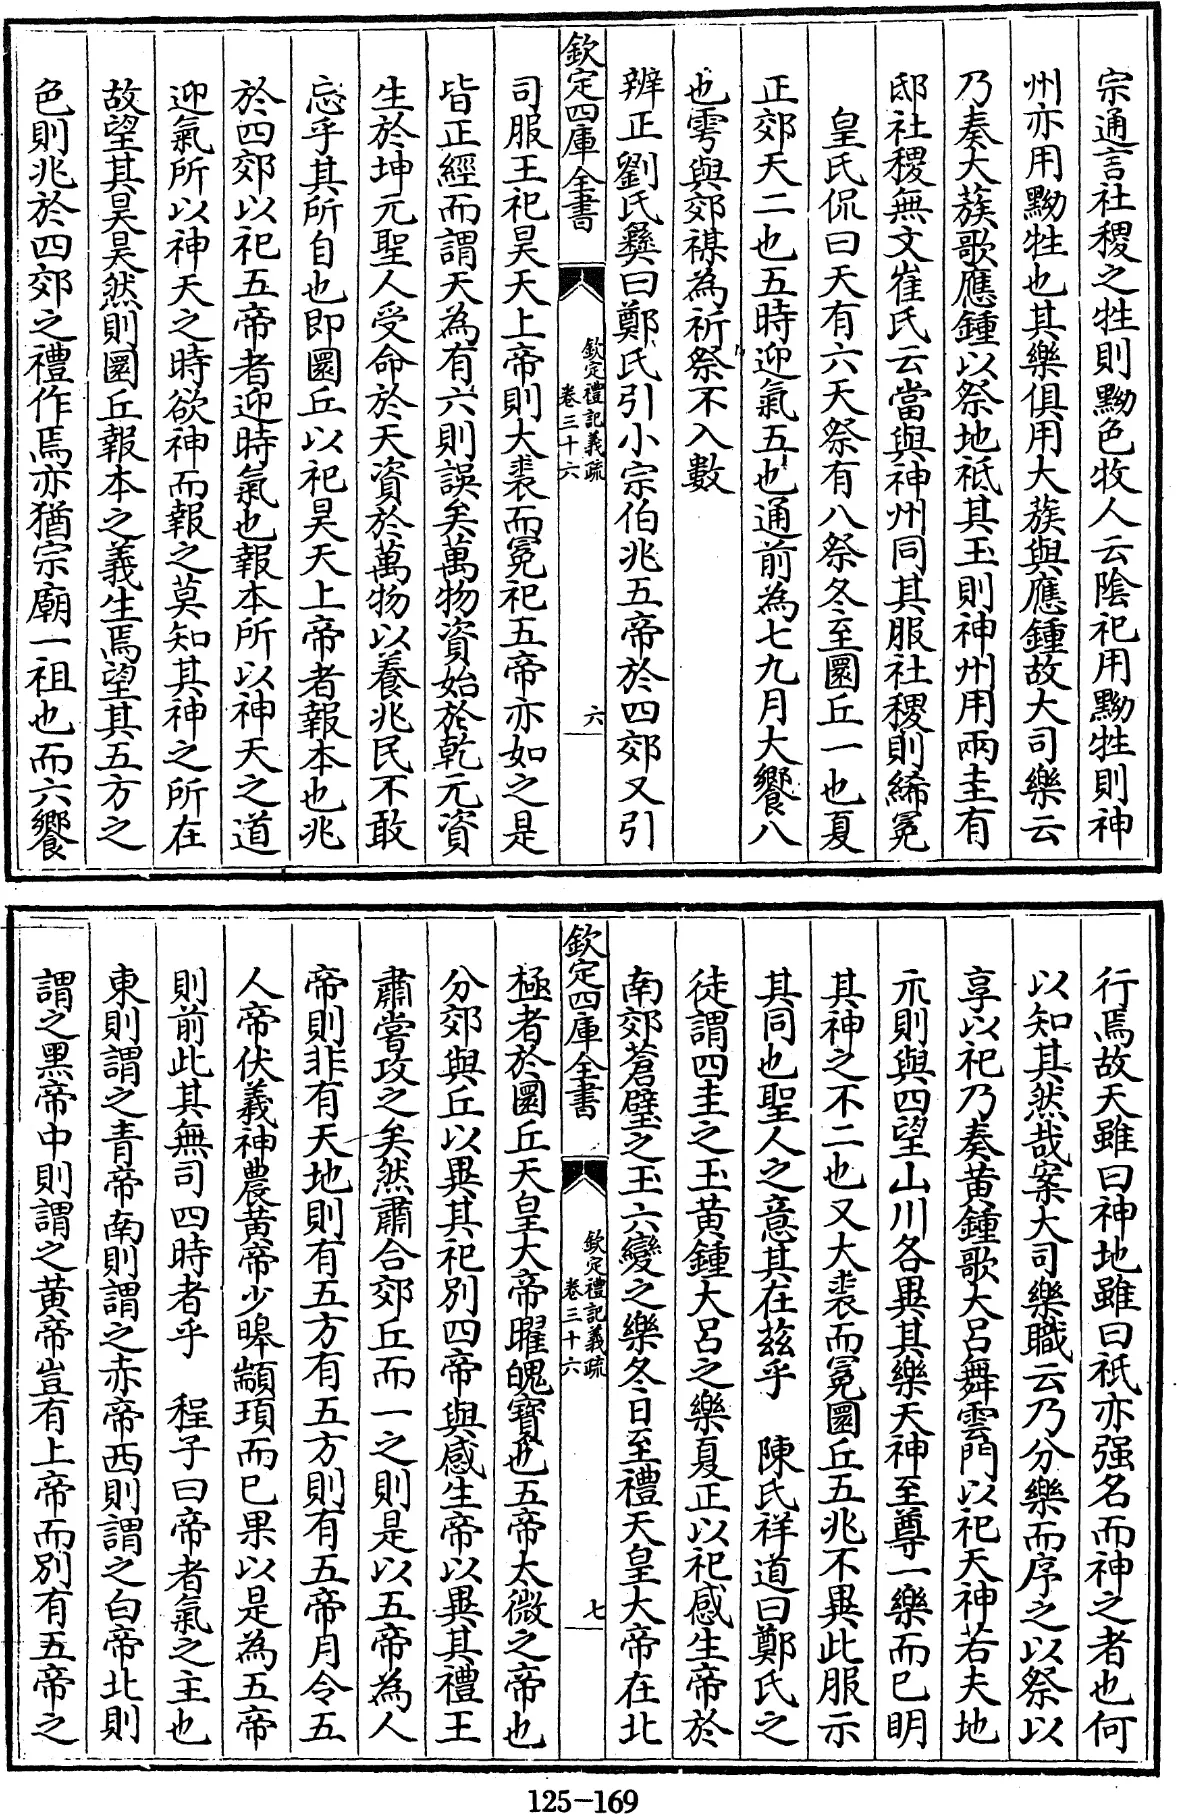 宗通言社稷之牲則黝色牧人云陰祀用黝牲則神
州亦用黝牲也其樂俱用大蔟與應鍾故大司樂云
乃奏大蔟歌應鍾以祭地祗其玉則神州用兩圭有
邸社稷無文崔氏云當與神州同其服社稷則絺冕
皇氏侃曰天有六天祭有八祭冬至圜丘一也夏
正郊天二也五時迎氣五也通前為七九月大饗八
也雩與郊禖為祈祭不入數
辨正劉氏彝曰鄭氏引小宗伯兆五帝於四郊又引
欽定四庫全書
欽定禮記義疏
卷三十六
六
司服王祀昊天上帝則大裘而冕祀五帝亦如之是
皆正經而謂天為有六則誤矣萬物資始於乾元資
生於坤元聖人受命於天資於萬物以養兆民不敢
忘乎其所自也即圜丘以祀昊天上帝者報本也兆
於四郊以祀五帝者迎時氣也報本所以神天之道
迎氣所以神天之時欲神而報之莫知其神之所在
故望其昊昊然則圜丘報本之義生焉望其五方之
色則兆於四郊之禮作焉亦猶宗廟一祖也而六饗
行焉故天雖曰神地雖曰祇亦强名而神之者也何
以知其然哉案大司樂職云乃分樂而序之以祭以
享以祀乃奏黃鍾歌大呂舞雲門以祀天神若夫地
示則與四望山川各異其樂天神至尊一樂而已明
其神之不二也又大裘而冕圜丘五兆不異此服示
其同也聖人之意其在茲乎　陳氏祥道曰鄭氏之
徒謂四圭之玉黃鍾大呂之樂夏正以祀感生帝於
南郊蒼璧之玉六變之樂冬日至禮天皇大帝在北
欽定四庫全書
欽定禮記義疏
卷三十六
七
極者於圜丘天皇大帝曜魄寶也五帝太微之帝也
分郊與丘以異其祀別四帝與感生帝以異其禮王
肅嘗攻之矣然肅合郊丘而一之則是以五帝為人
帝則非有天地則有五方有五方則有五帝月令五
人帝伏羲神農黃帝少皞顓頊而已果以是為五帝
則前此其無司四時者乎　程子曰帝者氣之主也
東則謂之青帝南則謂之赤帝西則謂之白帝北則
謂之黑帝中則謂之黃帝豈有上帝而別有五帝之
125-169